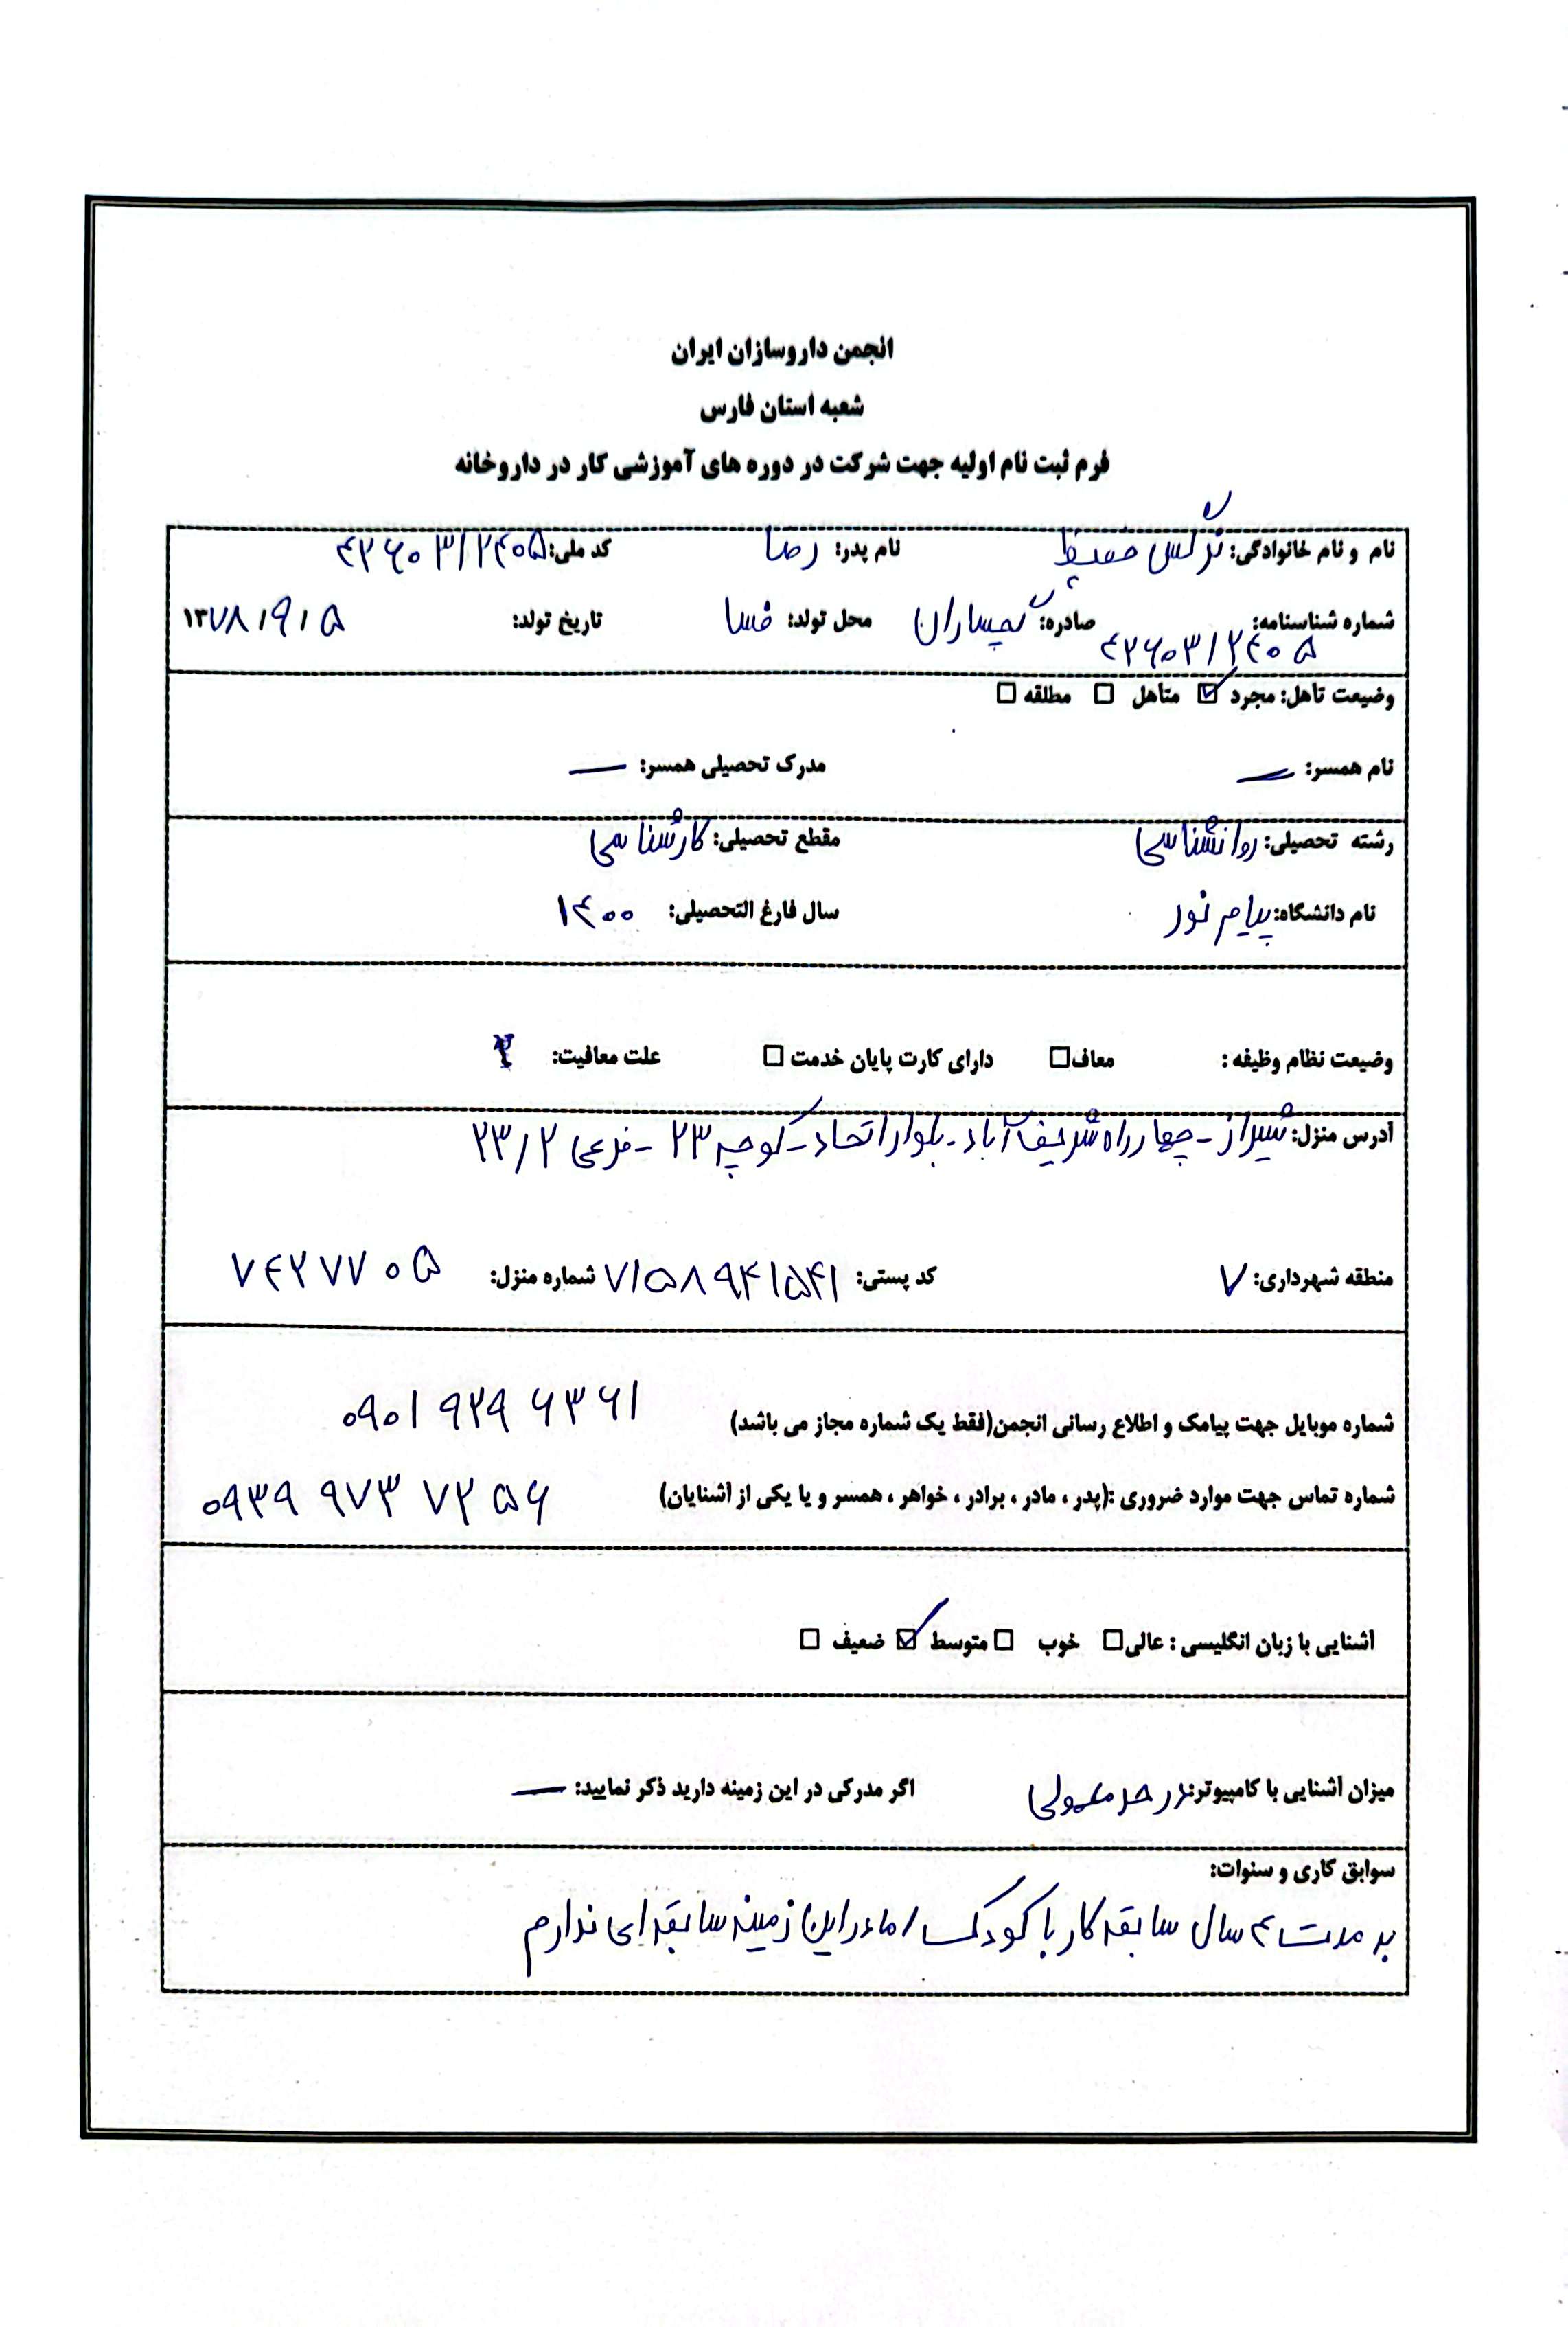 انجمن داروسازان ایران
شعبه استان فارس
فرم ثبت نام اولیه جهت شرکت در دوره های آموزشی کار در داروخانه
نام و نام خانوادگی: نرگس نام پدر: رضا کد ملی: ۴۲۶۰۳۱۲۴۰۵
شماره شناسنامه: ۴۲۶۰۳۱۲۴۰۵ صادره: گچساران محل تولد: فسا تاریخ تولد: ۱۳۷۸/۹/۵
وضیعت تاهل: مجرد ☑ متاهل ☐ مطلقه ☐
نام همسر: — مدرک تحصیلی همسر: —
رشته تحصیلی: روانشناسی مقطع تحصیلی: کارشناسی
نام دانشگاه: پیام نور سال فارغ التحصیلی: ۱۴۰۰
وضیعت نظام وظیفه : معاف☐ دارای کارت پایان خدمت ☐ علت معافیت:
آدرس منزل: شیراز - چهارراه شریف آباد - بلوار اتحاد - کوچه ۲۳ - فرعی ۲۳/۲
منطقه شهرداری: ۷ کد پستی: ۷۱۵۸۹۴۱۵۴۱ شماره منزل: ۷۴۲۷۷۰۵
شماره موبایل جهت پیامک و اطلاع رسانی انجمن(فقط یک شماره مجاز می باشد) ۰۹۰۱ ۹۲۹ ۶۳۶۱
شماره تماس جهت موارد ضروری :(پدر ، مادر ، برادر ، خواهر ، همسر و یا یکی از آشنایان) ۰۹۳۹ ۹۷۳ ۷۲۵۶
آشنایی با زبان انگلیسی : عالی☐ خوب ☐ متوسط ☑ ضعیف ☐
میزان آشنایی با کامپیوتر: در حد معمولی اگر مدرکی در این زمینه دارید ذکر نمایید: —
سوابق کاری و سنوات:
به مدت ۴ سال سابقه کار با کودک اما در این زمینه سابقه ای ندارم